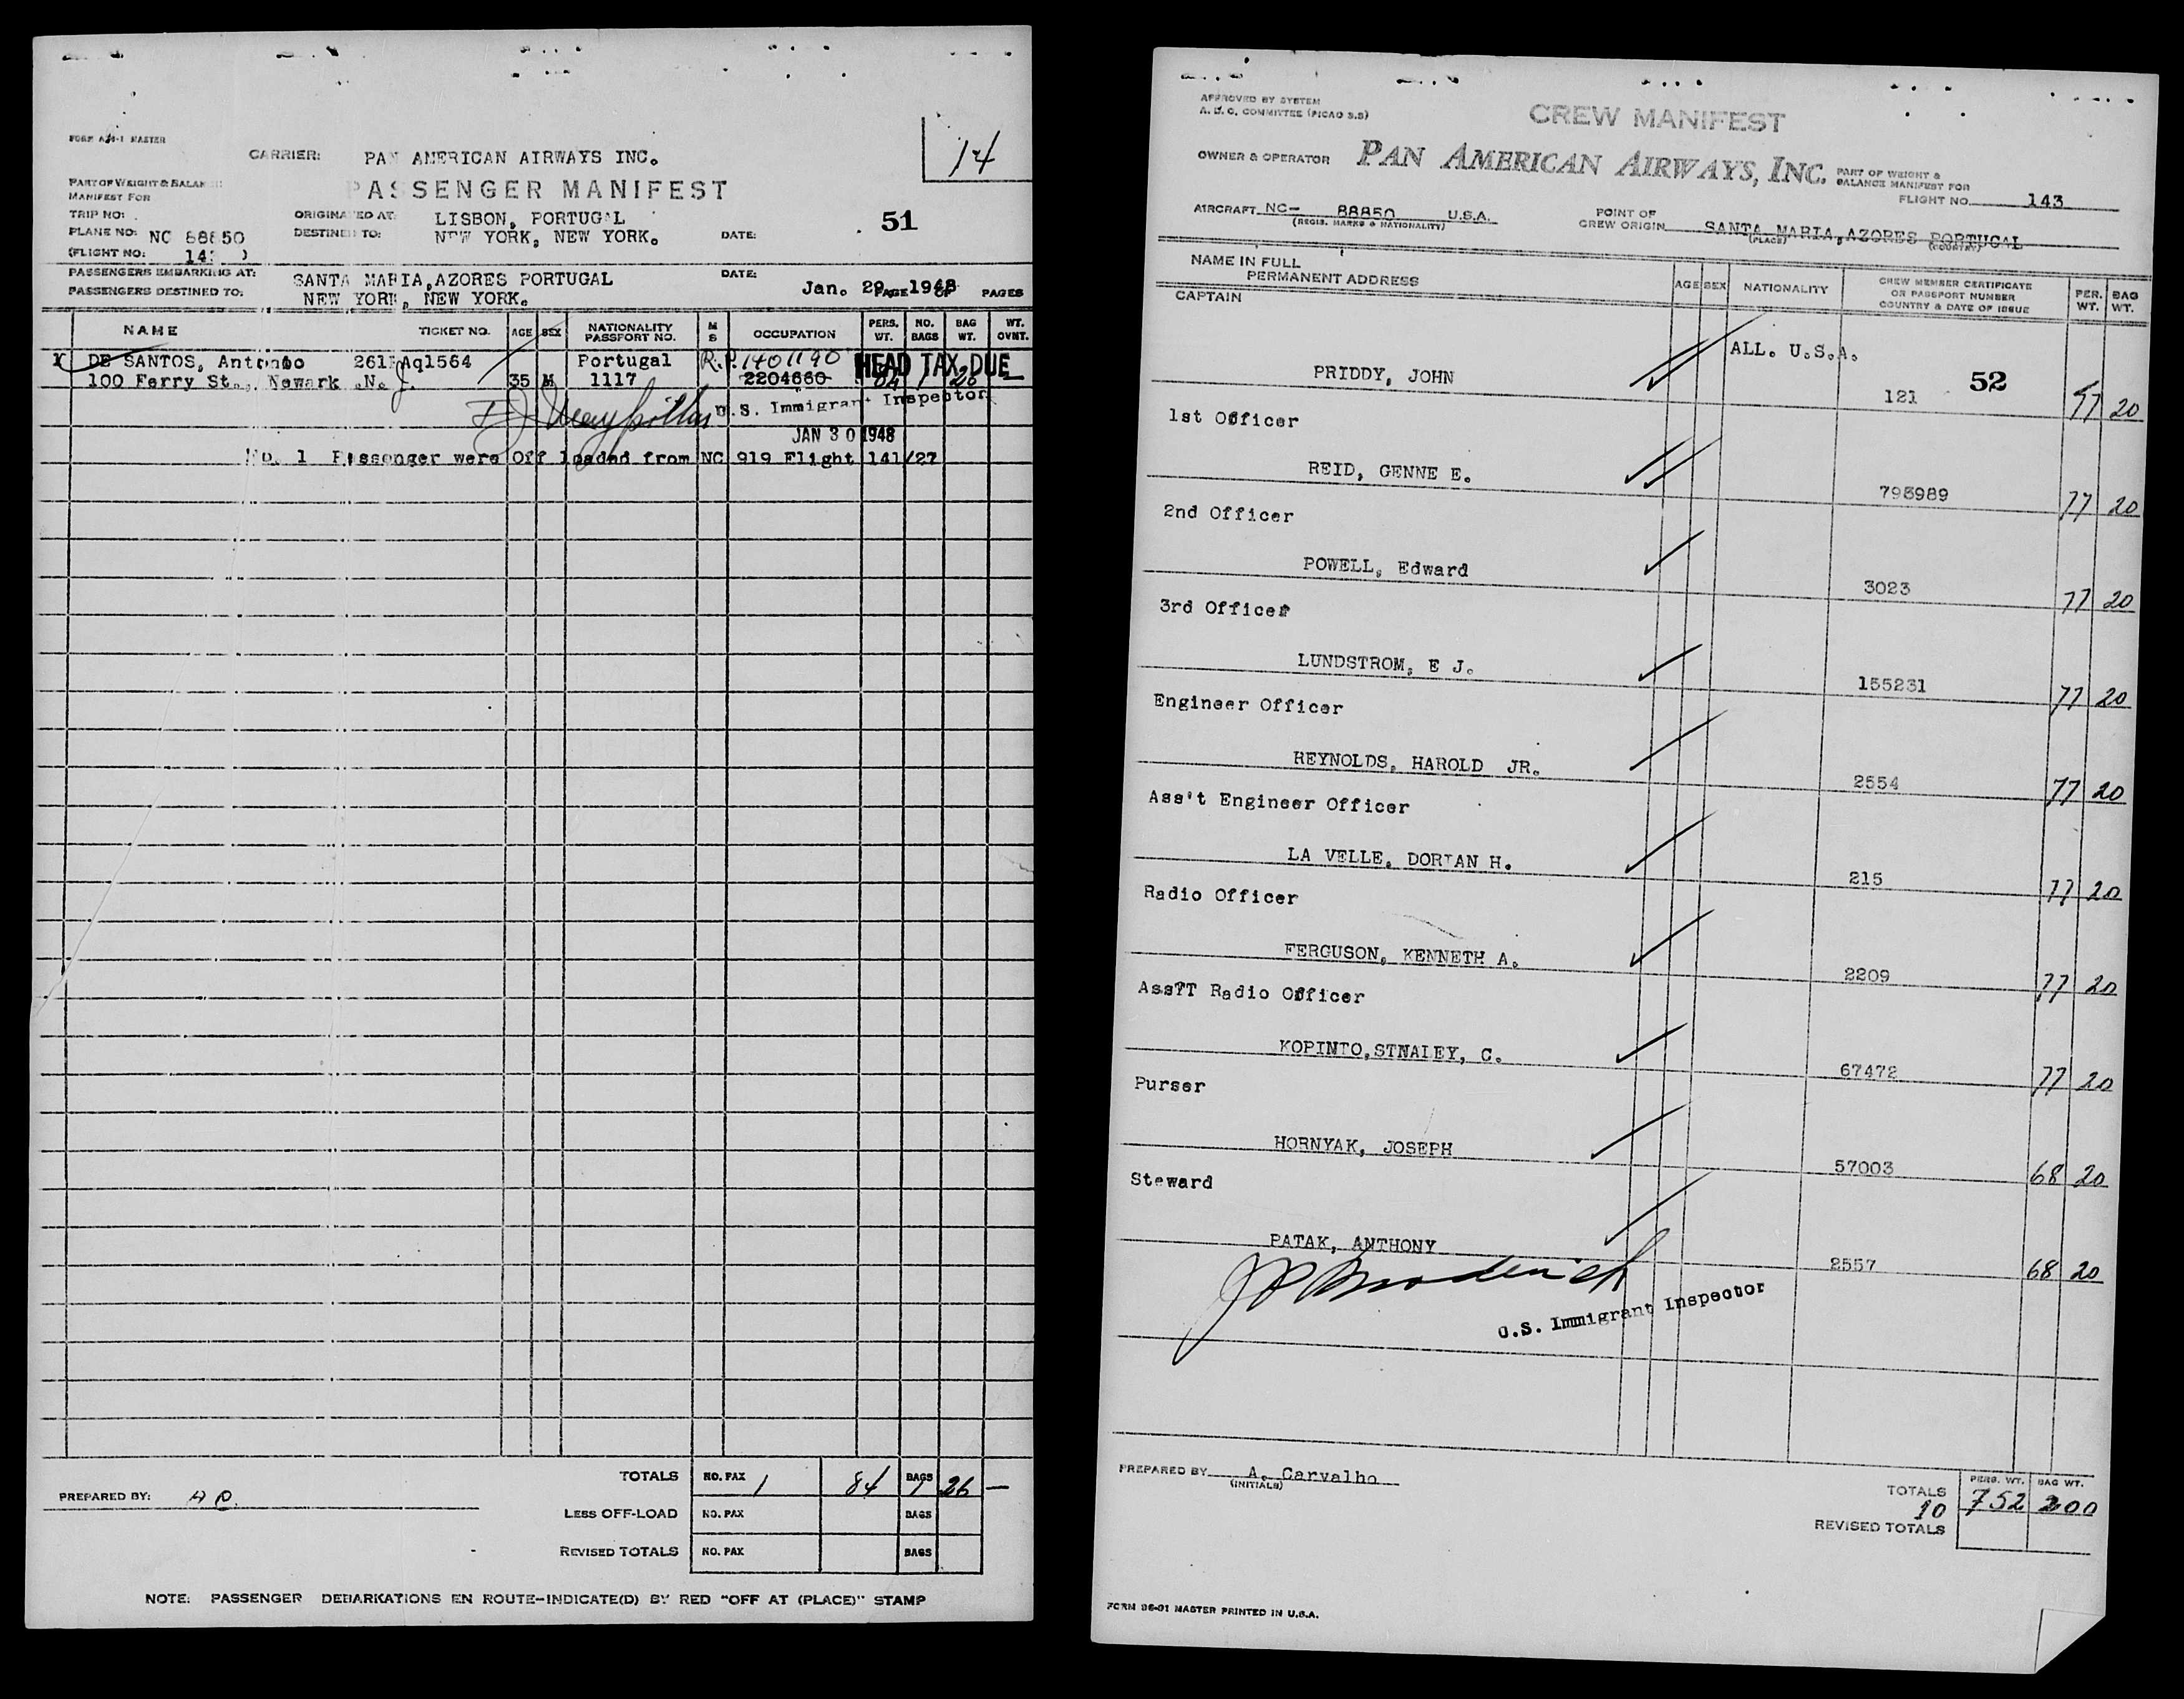 FORM A24-1 MASTER
14
CARRIER: PAN AMERICAN AIRWAYS INC.
PASSENGER MANIFEST
PART OF WEIGHT & BALANCE
MANIFEST FOR
TRIP NO: ORIGINATED AT: LISBON, PORTUGAL 51
PLANE NO: NC 88850 DESTINED TO: NEW YORK, NEW YORK. DATE:
(FLIGHT NO: 143 )
PASSENGERS EMBARKING AT: SANTA MARIA,AZORES PORTUGAL DATE:
PASSENGERS DESTINED TO: NEW YORK, NEW YORK. Jan. 29, 1948 PAGE OF PAGES
NAME TICKET NO. AGE SEX NATIONALITY PASSPORT NO. M S OCCUPATION PERS. WT. NO. BAGS BAG WT. WT. OVNT.
1 DE SANTOS, Antonio Aq1564 Portugal R.P. 1401190 HEAD TAX DUE
100 Ferry St., Newark .N. J. 35 M 1117 2204660 84 1 26 —
U.S. Immigrant Inspector
JAN 30 1948
No. 1 Passenger were Off loaded from NC 919 Flight 141/27
TOTALS NO. PAX 1 84 BAGS 1 26 —
PREPARED BY: AC
LESS OFF-LOAD NO. PAX BAGS
REVISED TOTALS NO. PAX BAGS
NOTE: PASSENGER DEBARKATIONS EN ROUTE-INDICATE(D) BY RED "OFF AT (PLACE)" STAMP
APPROVED BY SYSTEM
A. D. C. COMMITTEE (PICAO 3.3)
CREW MANIFEST
OWNER & OPERATOR PAN AMERICAN AIRWAYS, INC. PART OF WEIGHT &
BALANCE MANIFEST FOR
FLIGHT NO. 143
AIRCRAFT NC- 88850 U.S.A. POINT OF CREW ORIGIN SANTA MARIA,AZORES PORTUGAL
(REGIS. MARKS & NATIONALITY) (PLACE) (COUNTRY)
NAME IN FULL
PERMANENT ADDRESS AGE SEX NATIONALITY CREW MEMBER CERTIFICATE OR PASSPORT NUMBER COUNTRY & DATE OF ISSUE PER. WT. BAG WT.
CAPTAIN
ALL. U.S.A.
PRIDDY, JOHN 121 52 77 20
1st Officer
REID, GENNE E. 795989 77 20
2nd Officer
POWELL, Edward 3023 77 20
3rd Officer
LUNDSTROM, E J. 155231 77 20
Engineer Officer
REYNOLDS, HAROLD JR. 2554 77 20
Ass't Engineer Officer
LA VELLE, DORIAN H. 215 77 20
Radio Officer
FERGUSON, KENNETH A. 2209 77 20
Ass'T Radio Officer
KOPINTO,STNALEY, C. 67472 77 20
Purser
HORNYAK, JOSEPH 57003 68 20
Steward
PATAK, ANTHONY 2557 68 20
U.S. Immigrant Inspector
PREPARED BY A. Carvalho
(INITIALS)
PERS. WT. BAG WT.
TOTALS 10 752 200
REVISED TOTALS
FORM 96-01 MASTER PRINTED IN U.S.A.